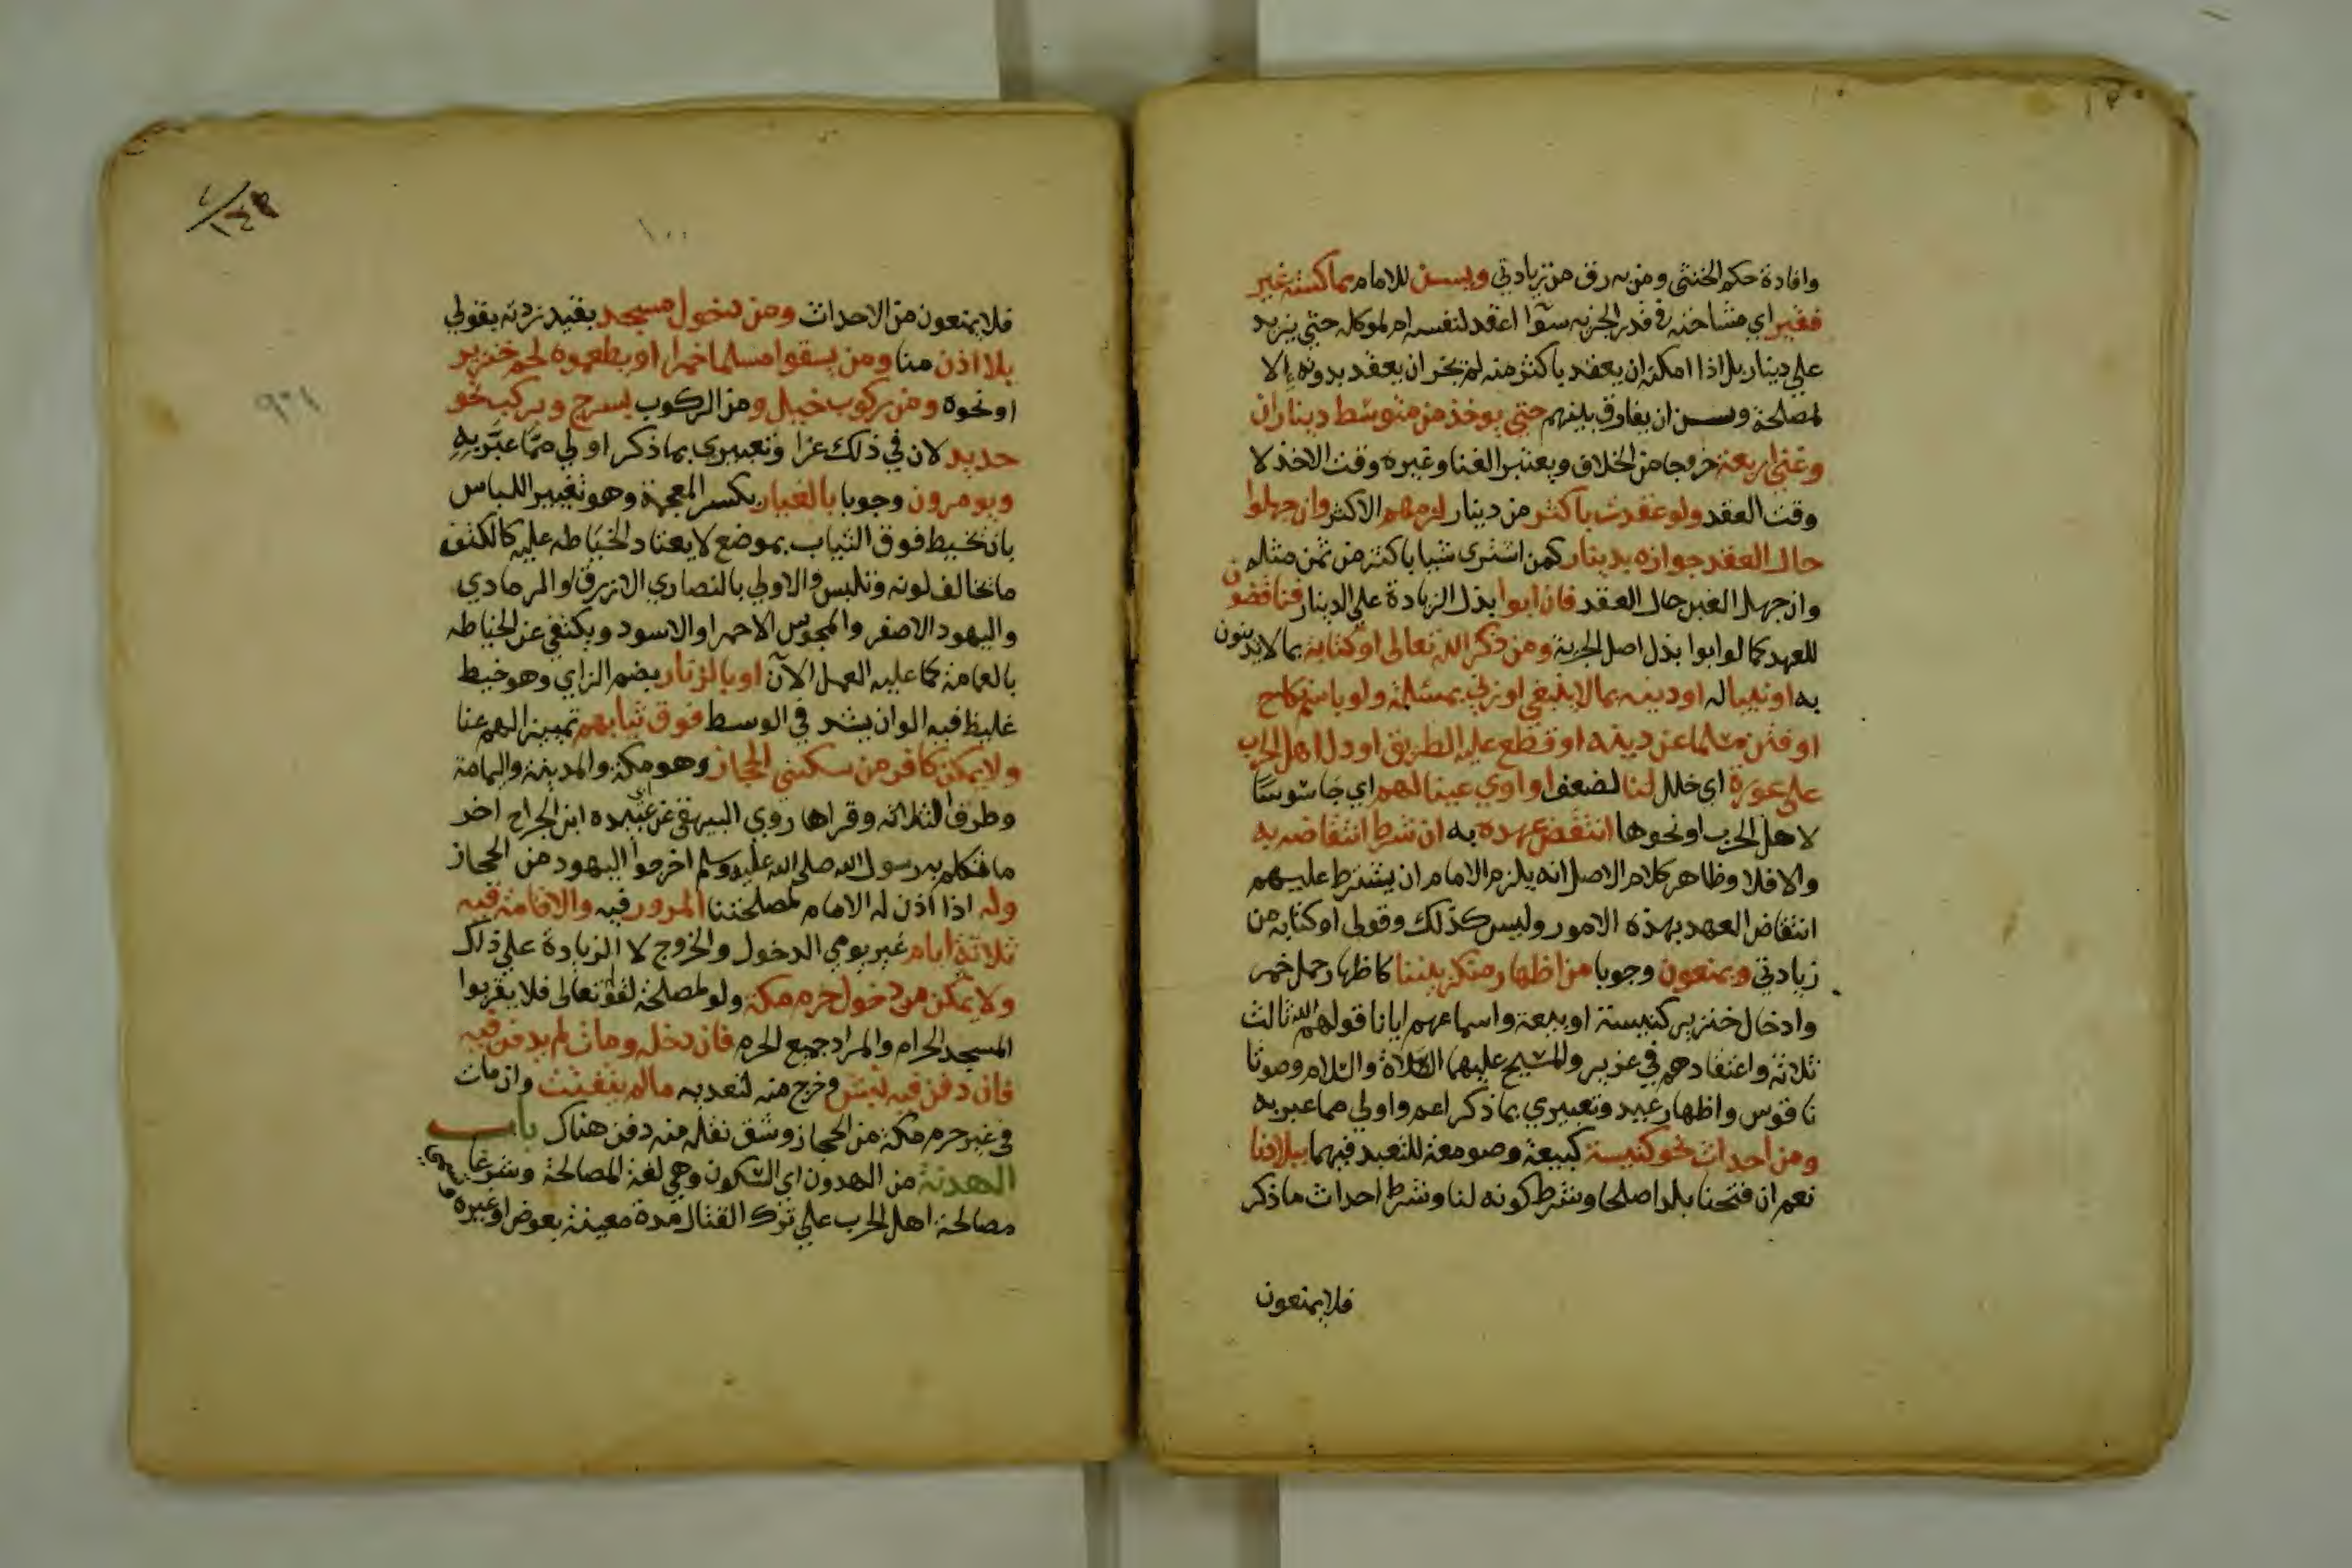 وافادة حكم الخنثى ومن به رق من زيادتي ويسن للامام مماكسة غير
فقير اي مشاحنه في قدر الجزيه سوآ اعقد لنفسه ام لموكله حتي يزيد
علي دينار بل اذا امكنه ان يعقد باكثر منه لم يجز ان يعقد بدونه الا
لمصلحة وسن ان يفاوق بينهم حتي يوخذ من متوسط ديناران
وغني اربعة خروجا من الخلاق ويعتبر الغنا وغيره وقت الاخذ لا
وقت العقد ولو عقدت باكثر من دينار لزمهم الاكثر وان جهلوا
حال العقد جوازه بدينار كمن اشترى شيا باكثر من ثمن مثله
وان جهل الغبن حال العقد فان ابوا بذل الزيادة علي الدينار فناقضون
للعهد كما لو ابوا بذل اصل الجزية ومن ذكر الله تعالى او كتابه بما لا يدينون
به او نبيا له او دينه بما لا ينبغي او زني بمسلمة ولو باسم نكاح
او فتن مسلما عن دينه او قطع عليه الطريق او دل اهل الحرب
على عورة اي خلل لنا لضعف او اوي عينا لهم اي جاسوسا
لاهل الحرب او نحوها انتقض عهده به ان شرط انتقاضه به
والا فلا وظاهر كلام الاصل انه يلزم الامام ان يشترط عليهم
انتقاض العهد بهذه الامور وليس كذلك وقولي او كتابه من
زيادتي ويمنعون وجوبا من اظهار منكر بيننا كاظهار حمل خمر
وادخال خنزير كنيسة او بيعة واسماعهم ايانا قولهم الله ثالث
ثلاثه واعتقادهم في عزير والمسيح عليهما الصلاة والسلام وصوتا
ناقوس واظهار عيد وتعبيري بما ذكر اعم واولي مما عبر به
ومن احداث نحو كنيسة كبيعة وصومعة للتعبد فيهما ببلادنا
نعم ان فتحنا بلدا صلحا وشرط كونه لنا وشرط احداث ما ذكر
فلا يمنعون
١٠٠
فلا يمنعون من الاحداث ومن دخول مسجد بقيد زدته بقولي
بلا اذن منا ومن يسقوا مسلما خمرا او يطعموه لحم خنزير
او نحوه ومن ركوب خيل ومن الركوب بسرج وبركب نحو
حديد لان في ذلك عزا وتعبيري بما ذكر اولي مما عبر به
ويومرون وجوبا بالغيار بكسر المعجمة وهو تغيير اللباس
بان تخيط فوق الثياب بموضع لا يعتاد الخياطه عليه كالكتف
ما تخالف لونه وتلبس والاولي بالنصاري الازرق او الرمادي
واليهود الاصفر والمجوس الاحمر او الاسود ويكتفي عن الخياطه
بالعمامة كما عليه العمل الآن او بالزنار بضم الزاي وهو خيط
غليظ فيه الوان يشد في الوسط فوق ثيابهم تمييزا لهم عنا
ولا يمكن كافر من سكني الحجاز وهو مكة والمدينة واليمامة
وطرق الثلاثه وقراها روي البيهقي عن ابي عبيده ابن الجراح اخر
ما تكلم به رسول الله صلى الله عليه وسلم اخرجوا اليهود من الحجاز
وله اذا اذن له الامام لمصلحتنا المرور فيه والاقامة فيه
ثلاثة ايام غير يومي الدخول والخروج لا الزيادة علي ذلك
ولا يمكن من دخول حرم مكة ولو لمصلحة لقوله تعالى فلا يقربوا
المسجد الحرام والمراد جميع الحرم فان دخله ومات لم يدفن فيه
فان دفن فيه نبش وخرج منه لتعديه ما لم يتفتت وان مات
في غير حرم مكة من الحجاز وشق نقله منه دفن هناك باب
الهدنة من الهدون اي السكون وهي لغة المصالحة وشرعا
مصالحة اهل الحرب علي ترك القتال مدة معينة بعوض او غيره